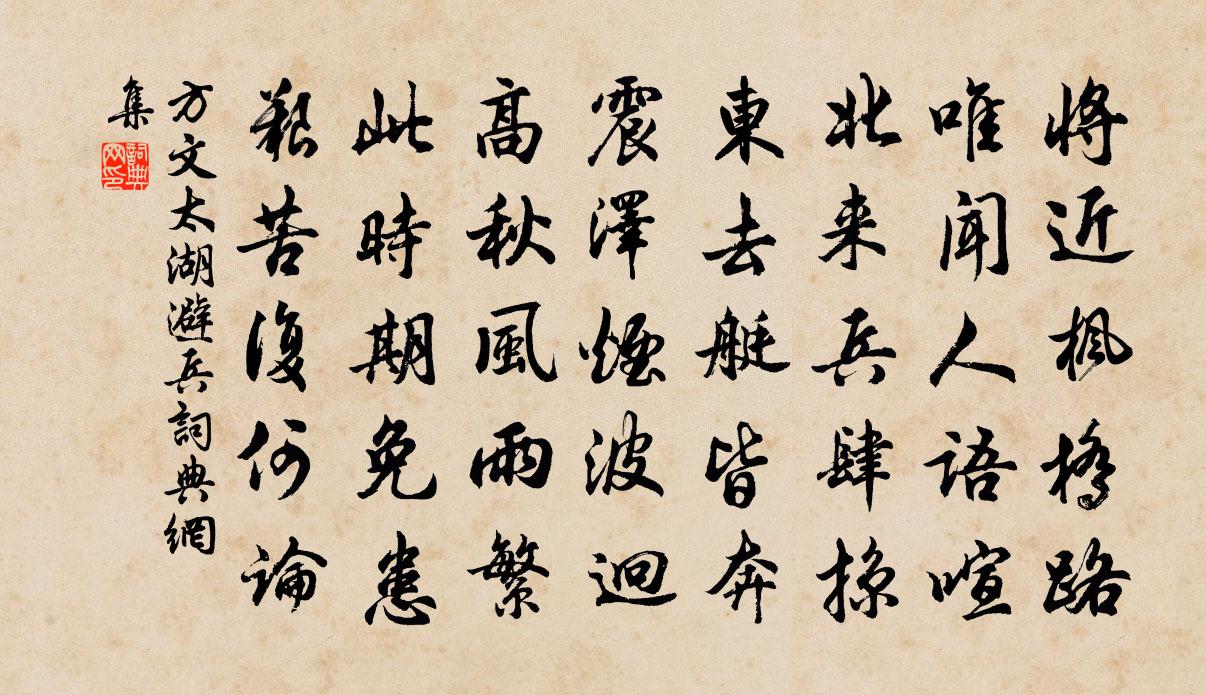 將近楓橋路
唯聞人語喧
北来兵肆掠
東去艇皆奔
震澤煙波迥
高秋風雨繁
此時期免患
艱苦復何論
方文太湖避兵詞典網
集
詞典網印